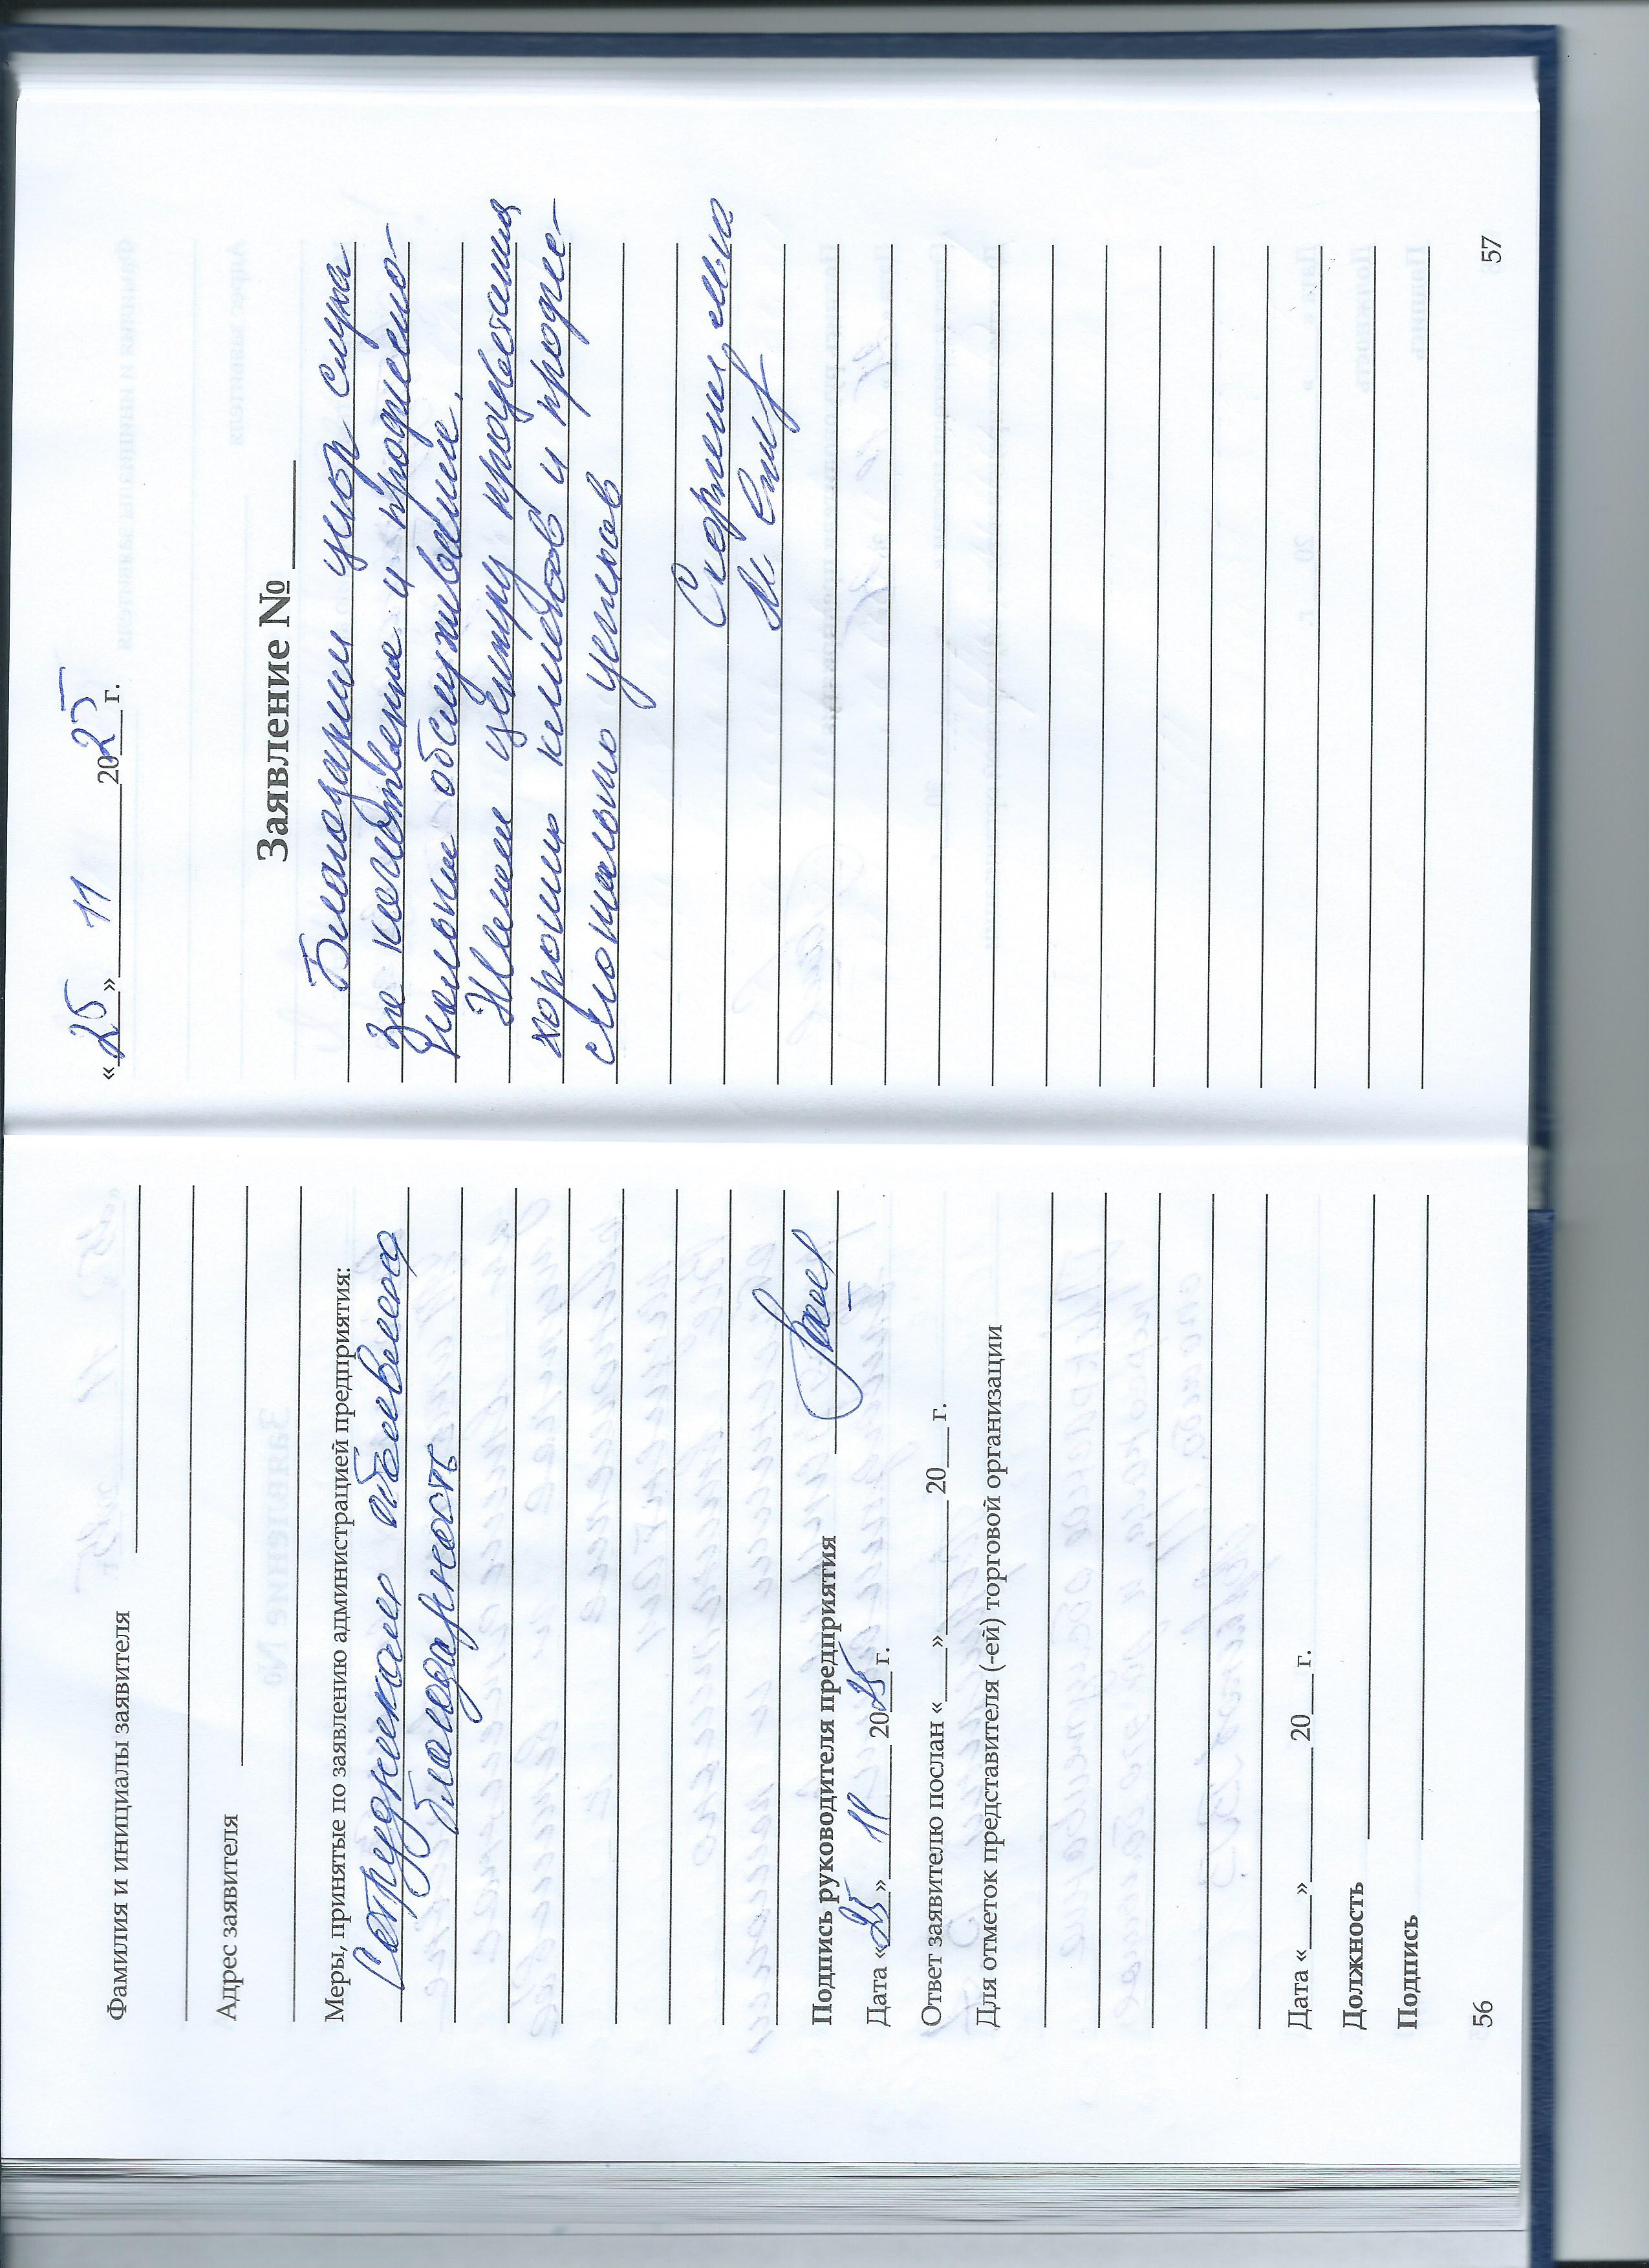 Фамилия и инициалы заявителя
Адрес заявителя
Меры, принятые по заявлению администрацией предприятия:
Сотрудникам объявлена
благодарность
Подпись руководителя предприятия
Дата «25» 11 2025 г.
Ответ заявителю послан «___»________ 20___ г.
Для отметок представителя (-ей) торговой организации
Дата «___»________ 20___ г.
Должность
Подпись
56
«25» 11 2025 г.
Заявление № ____
Благодарим центр слуха
за качественное и профессио-
нальное обслуживание.
Желаем центру процветания
хороших клиентов и профес-
сиональных успехов
57